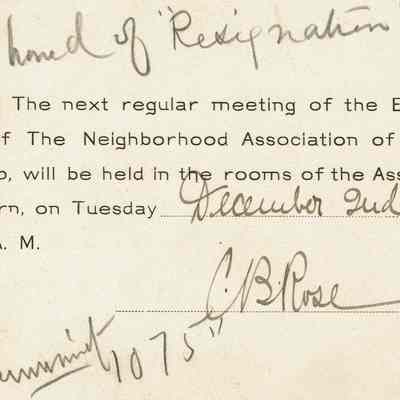 honed of "Resignation
The next regular meeting of the E
f The Neighborhood Association of
o, will be held in the rooms of the Ass
rn, on Tuesday December 2nd
A. M.
C. B. Rose
1075"